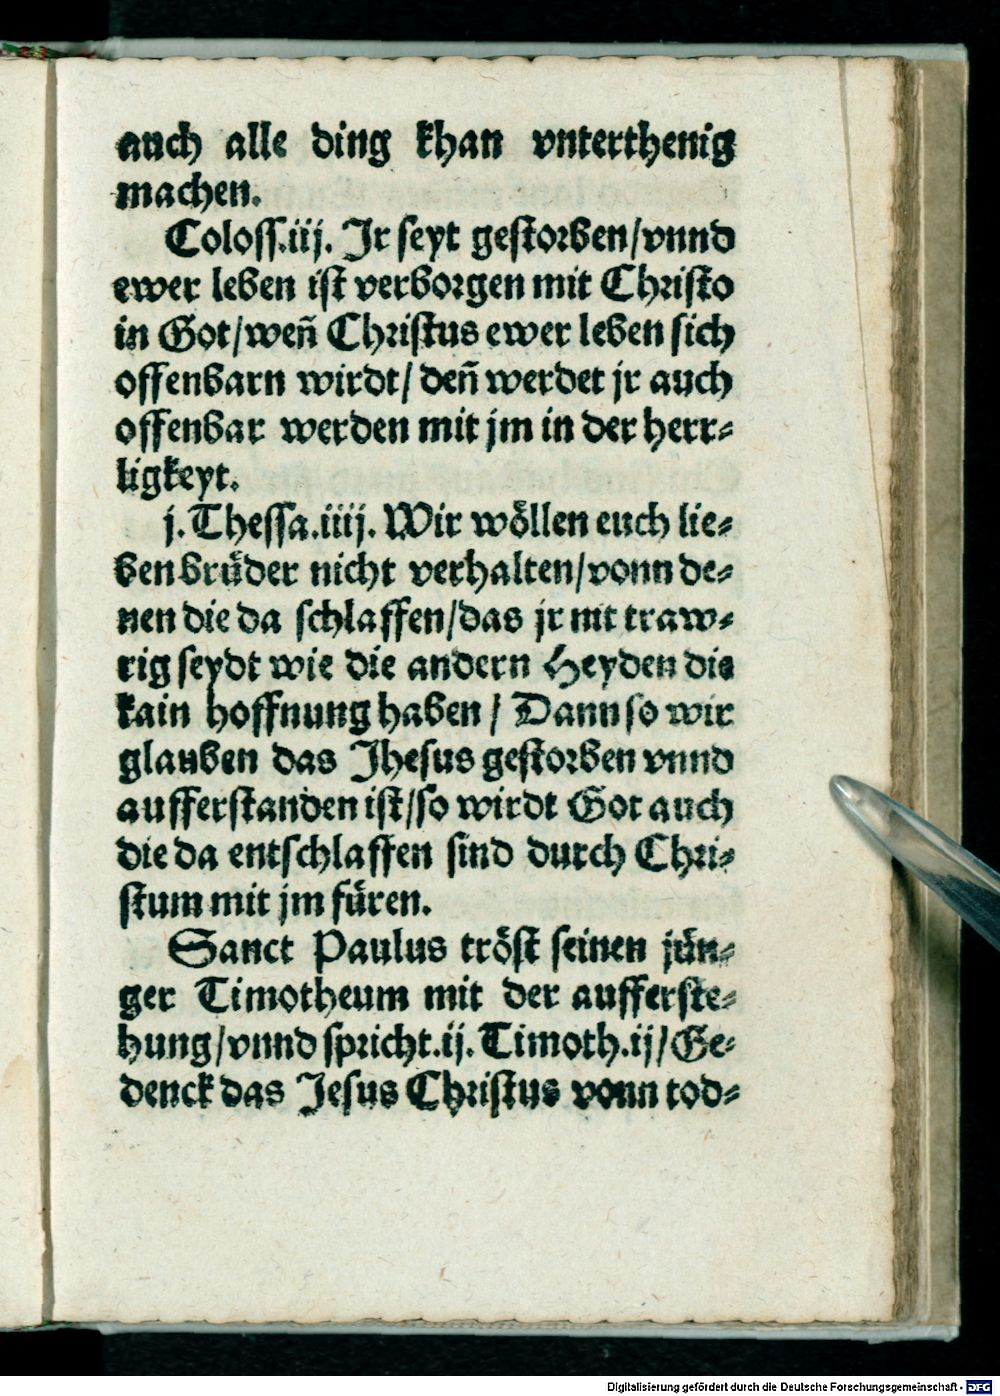 auch alle ding khan vnterthenig
machen.
Coloss.iij. Jr seyt gestorben/vnnd
ewer leben ist verborgen mit Christo
in Got/weñ Christus ewer leben sich
offenbarn wirdt/ deñ werdet jr auch
offenbar werden mit jm in der herr⸗
ligkeyt.
j. Thessa.iiij. Wir wöllen euch lie⸗
ben brüder nicht verhalten/vonn de⸗
nen die da schlaffen/das jr nit traw⸗
rig seydt wie die andern Heyden die
kain hoffnung haben / Dann so wir
glauben das Jhesus gestorben vnnd
aufferstanden ist/so wirdt Got auch
die da entschlaffen sind durch Chri⸗
stum mit jm füren.
Sanct Paulus tröst seinen jün⸗
ger Timotheum mit der aufferste⸗
hung/vnnd spricht.ij. Timoth.ij/Ge⸗
denck das Jesus Christus vonn tod⸗
Digitalisierung gefördert durch die Deutsche Forschungsgemeinschaft - DFG